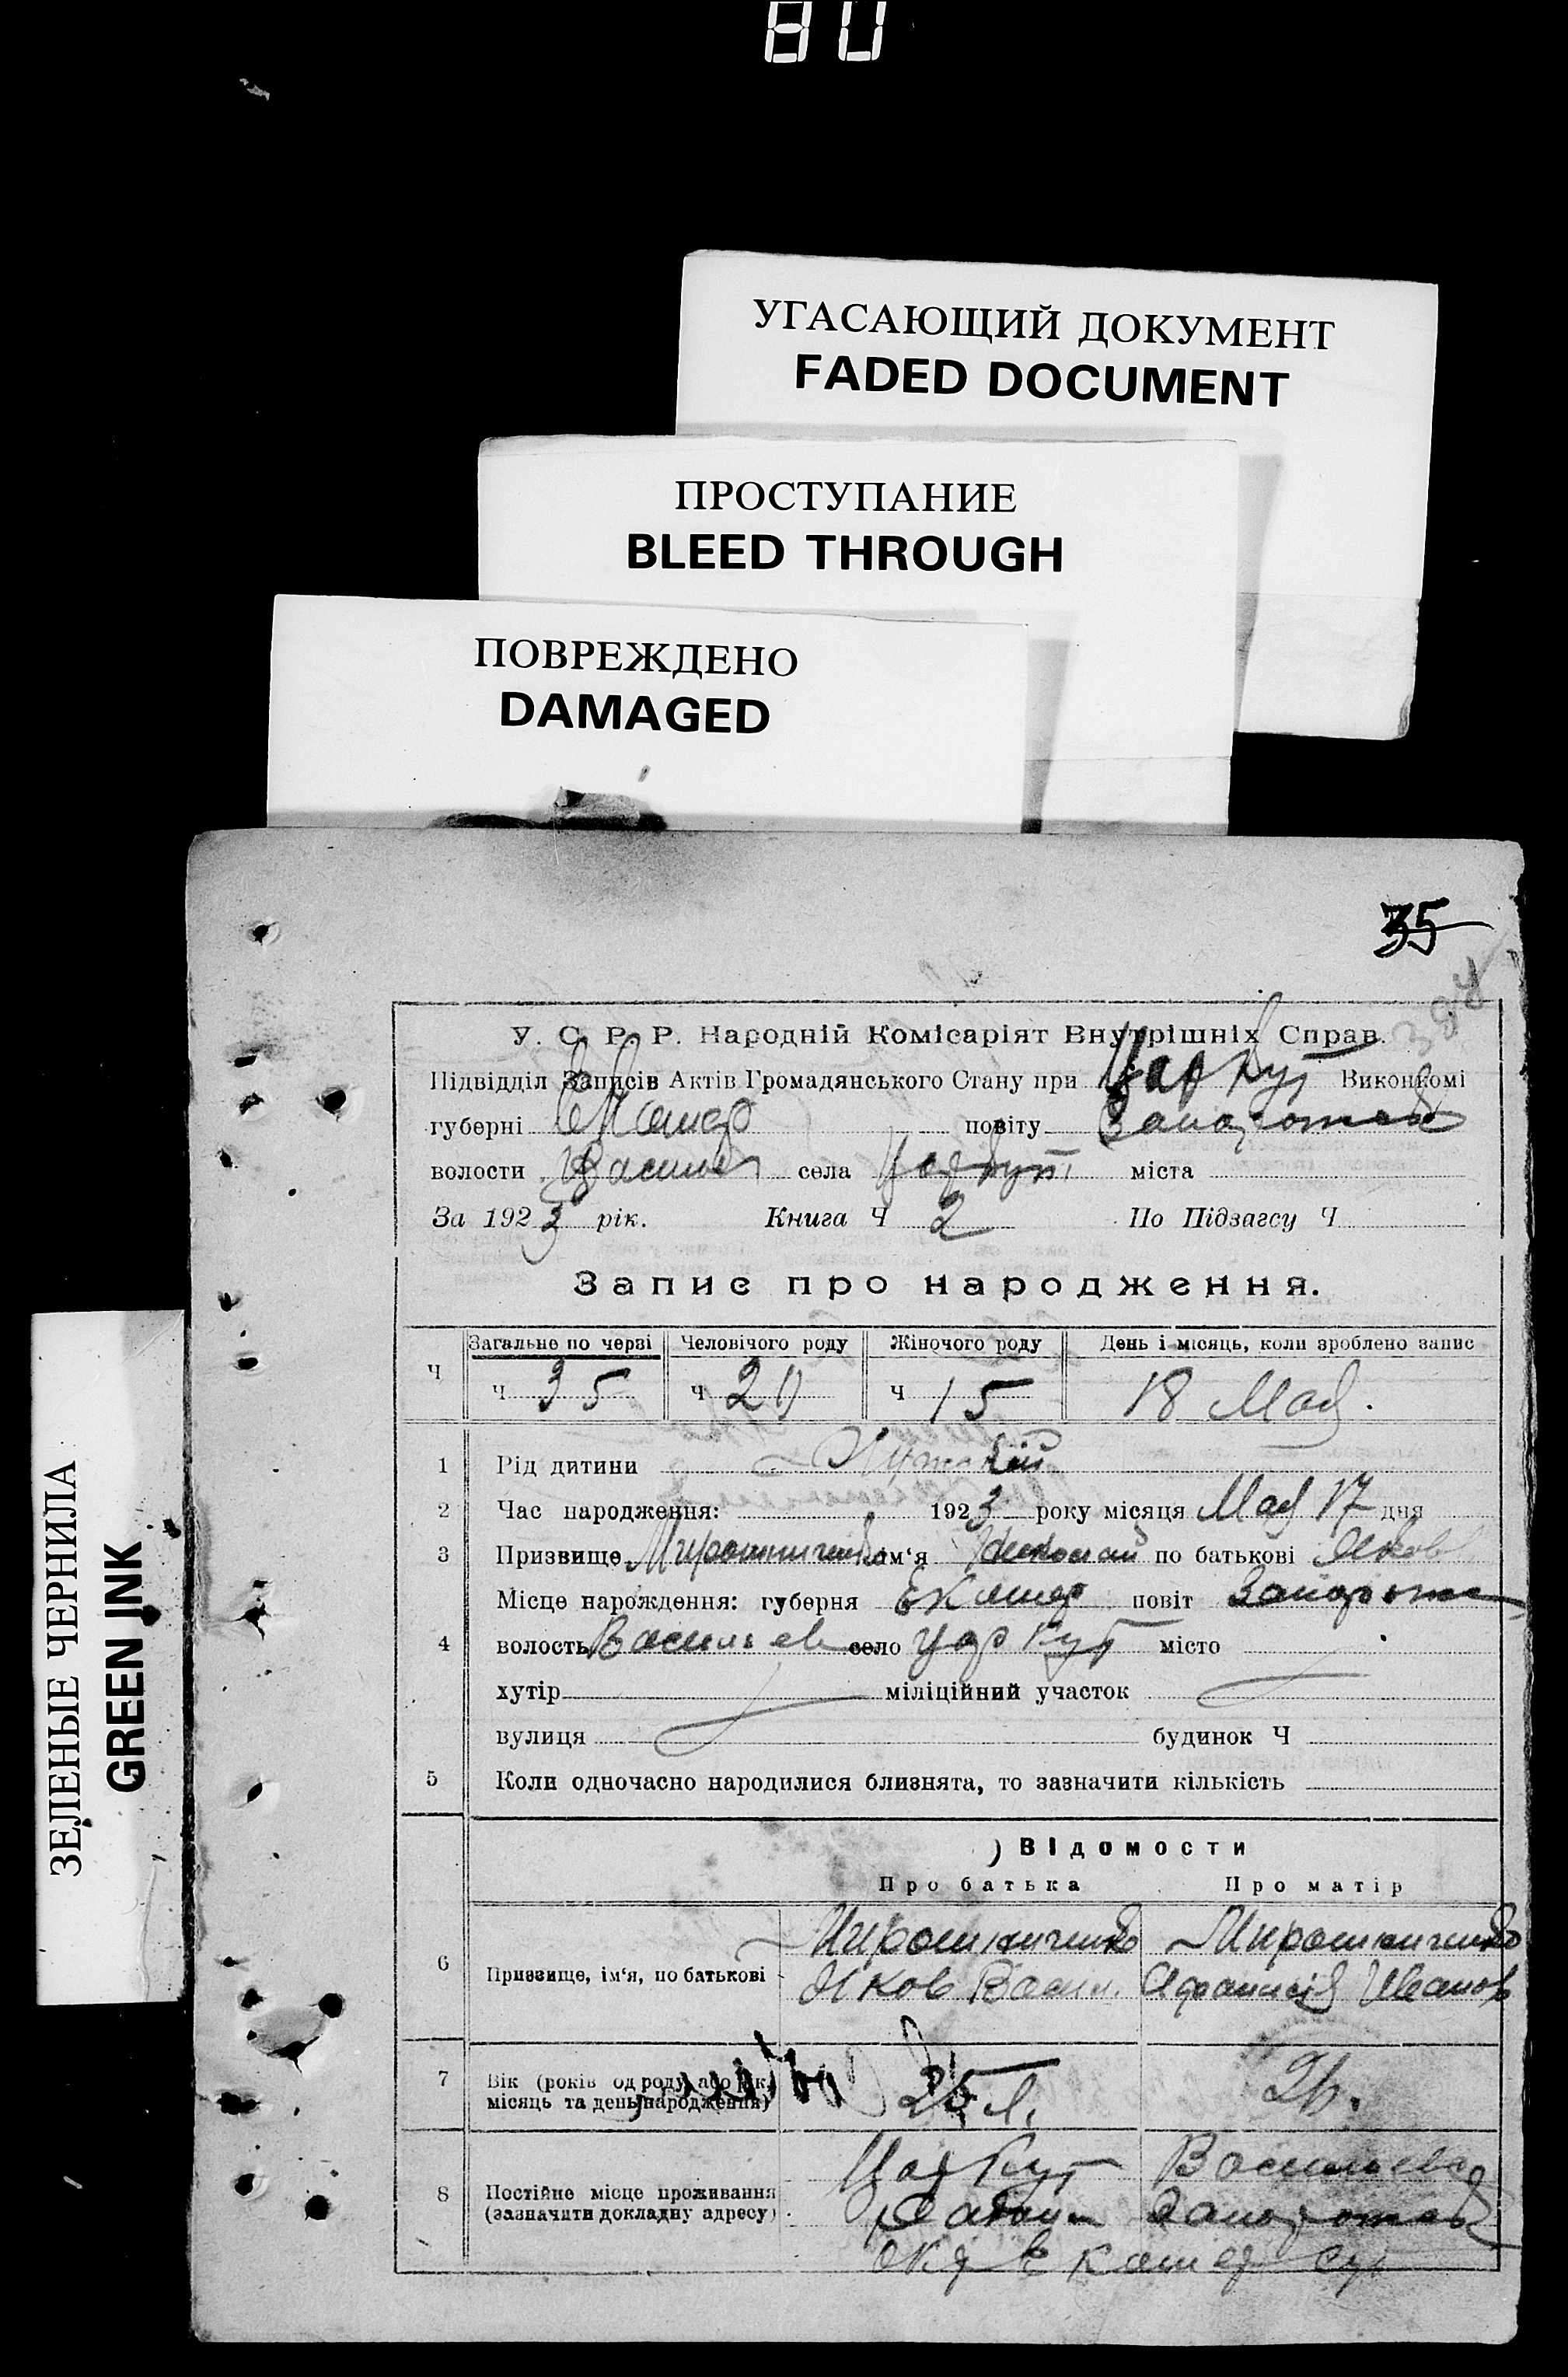 80
УГАСАЮЩИЙ ДОКУМЕНТ
FADED DOCUMENT
ПРОСТУПАНИЕ
BLEED THROUGH
ПОВРЕЖДЕНО
DAMAGED
ЗЕЛЕНЫЕ ЧЕРНИЛА
GREEN INK
35
394
У. С. Р. Р. Народній Комісаріят Внутрішніх Справ.
Підвідділ Записів Актів Громадянського Стану при Цар Кут Виконкомі
губерні повіту Запорожск
волости Василев села Цар Кут міста
За 1923 рік. Книга Ч 2 По Підзагсу Ч
Запис про народження.
Ч Загальне по черзі Человічого роду Жіночого роду День і місяць, коли зроблено запис
Ч 35 Ч 20 Ч 15 18 Мая.
1 Рід дитини Мужской
2 Час народження: 1923 року місяця Мая 17 дня
3 Призвище Мирошниченко ім‘я Николай по батькові Яков
Місце народження: губерня Екатер повіт Запорож
4 волость Василев село Цар Кут місто
хутір міліційний участок
вулиця будинок Ч
5 Коли одночасно народилися близнята, то зазначити кількість
Відомости
Про батька Про матір
6 Призвище, ім‘я, по батькові Мирошниченко Мирошниченко
Яков Васил. Афанисія Иванов
7 Вік (років од роду або рік, місяць та день народження) 25 л. 26.
8 Постійне місце проживання
(зазначити докладну адресу)
Цар Кут Василевс
Запорожск
Окр Екатер Губ